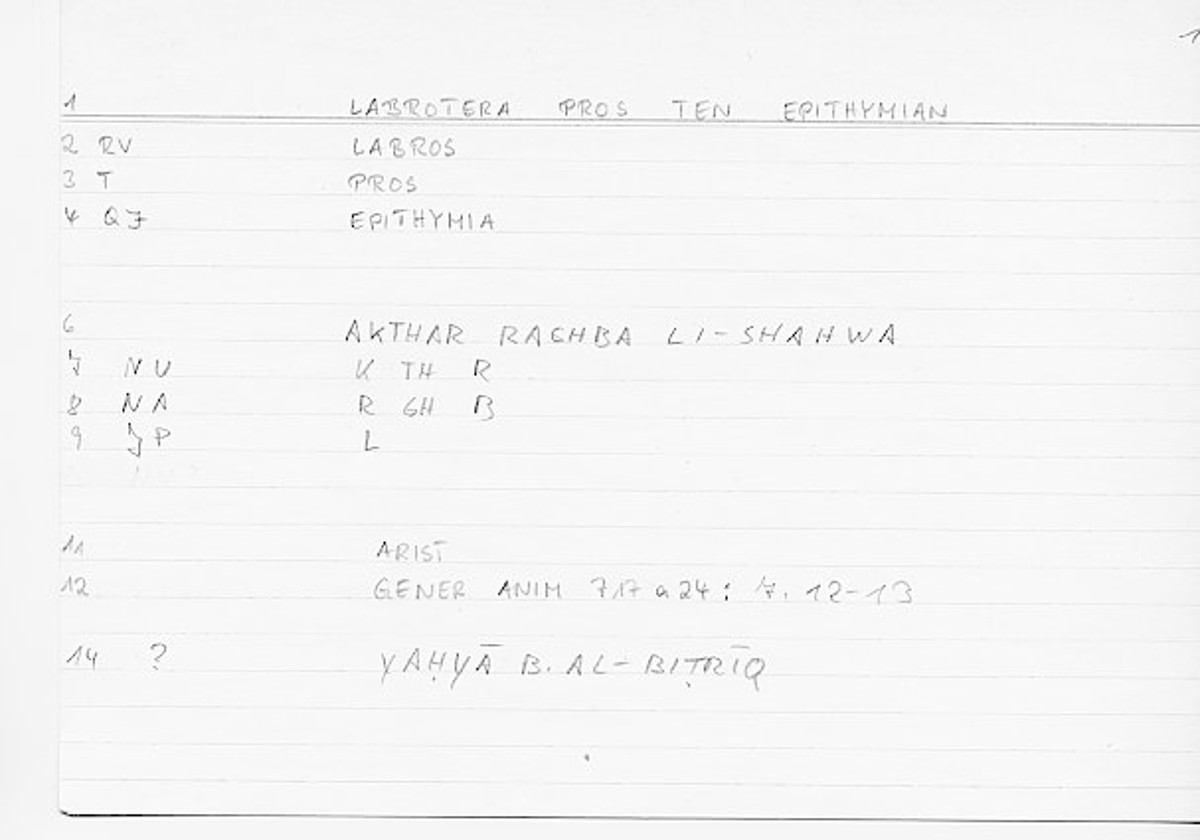 1
1 LABROTERA PROS TEN EPITHYMIAN
2 RV LABROS
3 T PROS
4 QJ EPITHYMIA
6 AKTHAR RAGHBA LI-SHAHWA
7 NU K TH R
8 NA R GH B
9 JP L
11 ARIST
12 GENER ANIM 717 a 24 : 7. 12-13
14 ? YAḤYĀ B. AL-BIṬRĪQ